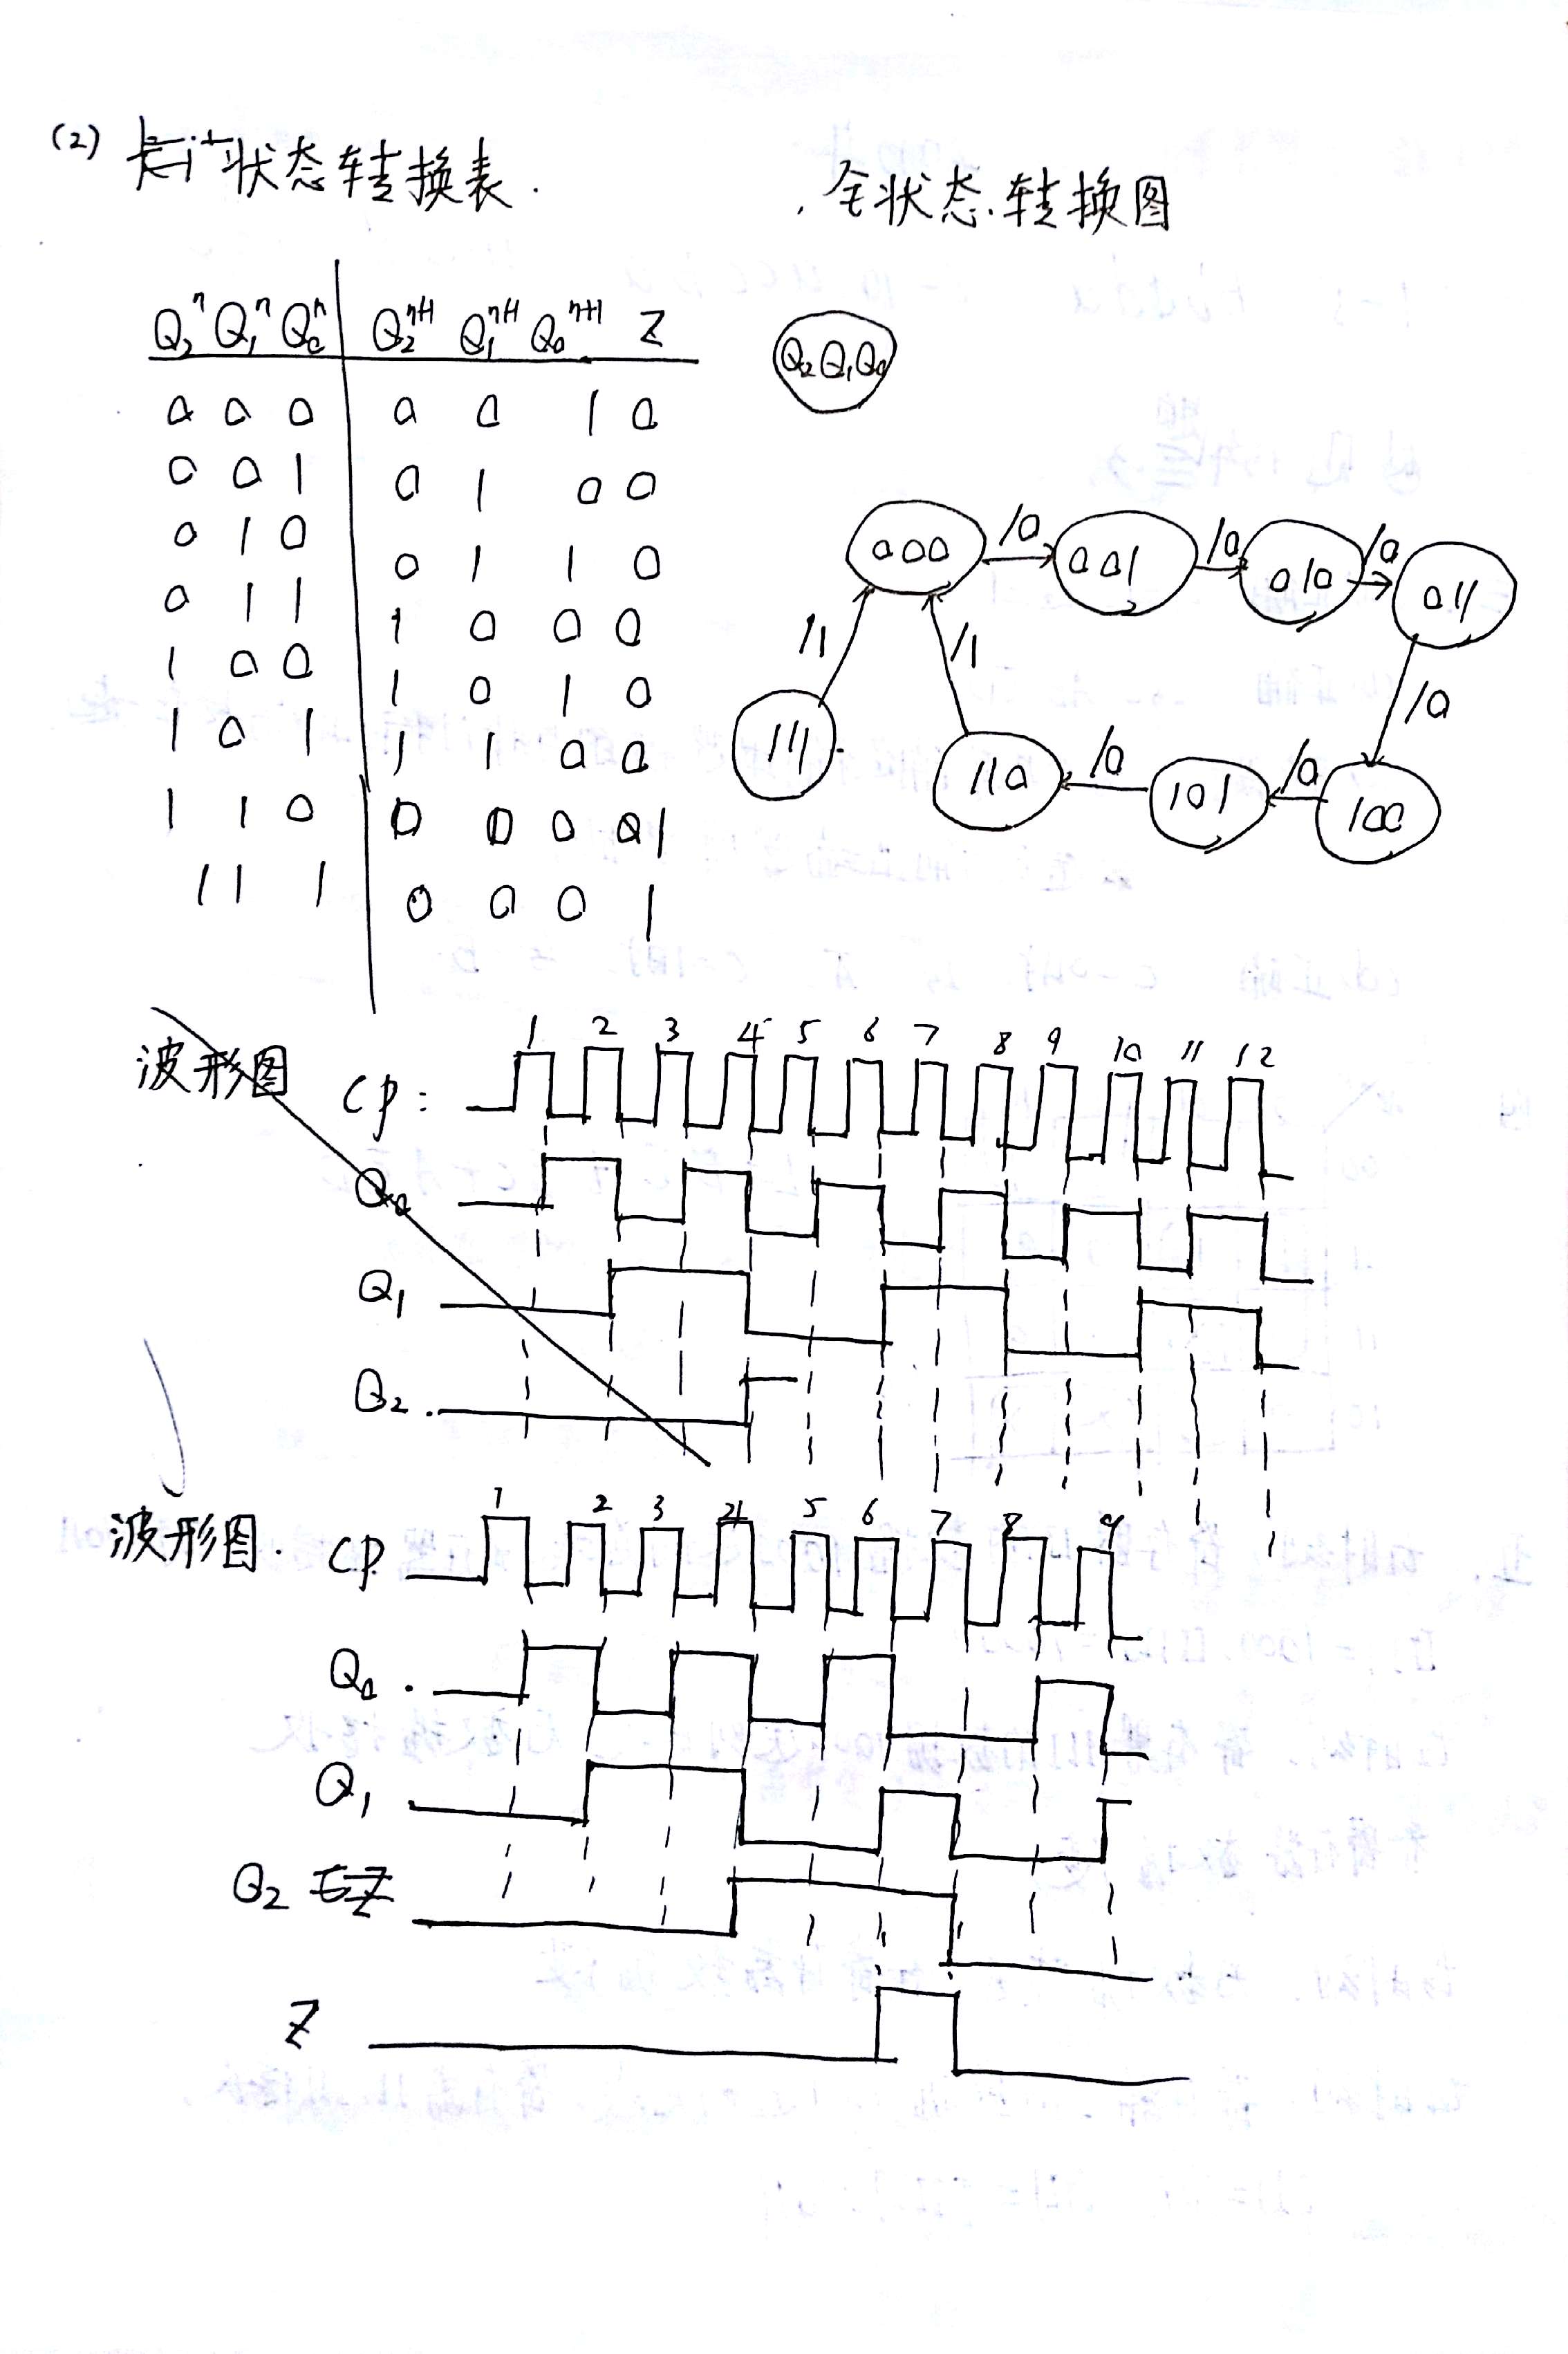 (2) 状态转换表.
全状态转换图
Q₂ⁿ Q₁ⁿ Q₀ⁿ Q₂ⁿ⁺¹ Q₁ⁿ⁺¹ Q₀ⁿ⁺¹ Z
0 0 0 0 0 1 0
0 0 1 0 1 0 0
0 1 0 0 1 1 0
0 1 1 1 0 0 0
1 0 0 1 0 1 0
1 0 1 1 1 0 0
1 1 0 0 0 0 1
1 1 1 0 0 0 1
Q₂Q₁Q₀
000 /0 001 /0 010 /0 011
/1 /1 /0
111 110 /0 101 /0 100
波形图 CP: 1 2 3 4 5 6 7 8 9 10 11 12
Q₀
Q₁
Q₂
波形图. CP 1 2 3 4 5 6 7 8 9
Q₀
Q₁
Q₂
Z